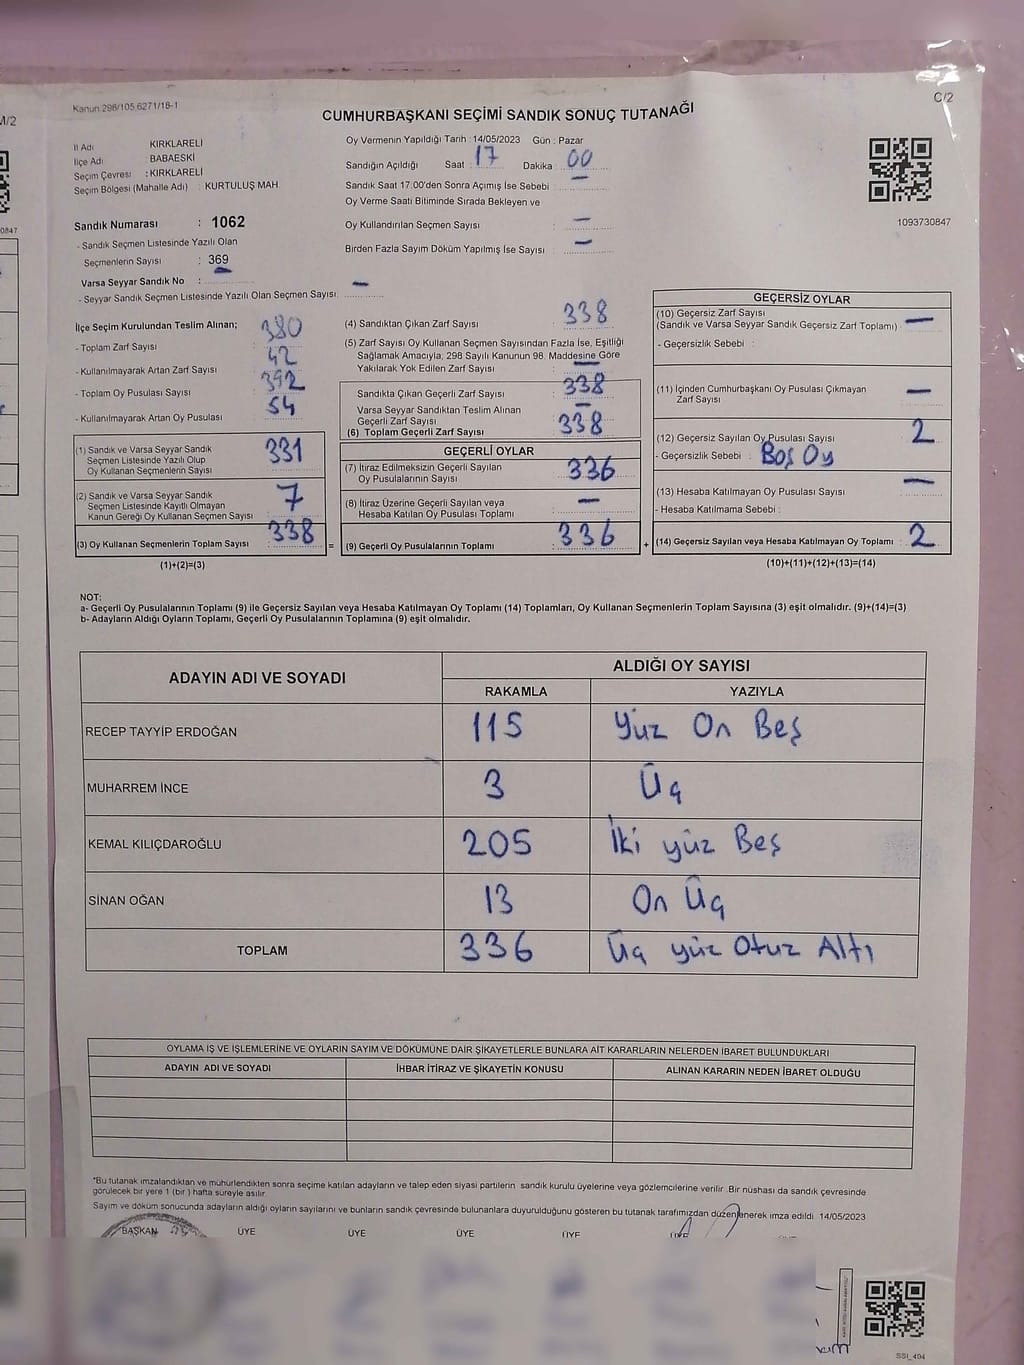 Kanun 298/105,6271/18-1
C/2
M/2
CUMHURBAŞKANI SEÇİMİ SANDIK SONUÇ TUTANAĞI
İl Adı KIRKLARELİ
İlçe Adı : BABAESKİ
Seçim Çevresi : KIRKLARELİ
Seçim Bölgesi (Mahalle Adı) : KURTULUŞ MAH.
Sandık Numarası : 1062
- Sandık Seçmen Listesinde Yazılı Olan
Seçmenlerin Sayısı : 369
Varsa Seyyar Sandık No : —
- Seyyar Sandık Seçmen Listesinde Yazılı Olan Seçmen Sayısı: —
Oy Vermenin Yapıldığı Tarih : 14/05/2023 Gün : Pazar
Sandığın Açıldığı Saat : 17 Dakika : 00
Sandık Saat 17:00'den Sonra Açımış İse Sebebi : —
Oy Verme Saati Bitiminde Sırada Bekleyen ve
Oy Kullandırılan Seçmen Sayısı : —
Birden Fazla Sayım Döküm Yapılmış İse Sayısı : —
1093730847
0847
İlçe Seçim Kurulundan Teslim Alınan;
- Toplam Zarf Sayısı : 380
- Kullanılmayarak Artan Zarf Sayısı : 42
- Toplam Oy Pusulası Sayısı : 392
- Kullanılmayarak Artan Oy Pusulası : 54
(1) Sandık ve Varsa Seyyar Sandık
Seçmen Listesinde Yazılı Olup
Oy Kullanan Seçmenlerin Sayısı : 331
(2) Sandık ve Varsa Seyyar Sandık
Seçmen Listesinde Kayıtlı Olmayan
Kanun Gereği Oy Kullanan Seçmen Sayısı : 7
(3) Oy Kullanan Seçmenlerin Toplam Sayısı : 338
(1)+(2)=(3)
(4) Sandıktan Çıkan Zarf Sayısı : 338
(5) Zarf Sayısı Oy Kullanan Seçmen Sayısından Fazla İse, Eşitliği
Sağlamak Amacıyla, 298 Sayılı Kanunun 98. Maddesine Göre
Yakılarak Yok Edilen Zarf Sayısı : —
Sandıkta Çıkan Geçerli Zarf Sayısı : 338
Varsa Seyyar Sandıktan Teslim Alınan
Geçerli Zarf Sayısı : —
(6) Toplam Geçerli Zarf Sayısı : 338
GEÇERLİ OYLAR
(7) İtiraz Edilmeksizin Geçerli Sayılan
Oy Pusulalarının Sayısı : 336
(8) İtiraz Üzerine Geçerli Sayılan veya
Hesaba Katılan Oy Pusulası Toplamı : —
= (9) Geçerli Oy Pusulalarının Toplamı : 336 +
GEÇERSİZ OYLAR
(10) Geçersiz Zarf Sayısı
(Sandık ve Varsa Seyyar Sandık Geçersiz Zarf Toplamı) : —
- Geçersizlik Sebebi :
(11) İçinden Cumhurbaşkanı Oy Pusulası Çıkmayan
Zarf Sayısı : —
(12) Geçersiz Sayılan Oy Pusulası Sayısı : 2
- Geçersizlik Sebebi : Boş Oy
(13) Hesaba Katılmayan Oy Pusulası Sayısı : —
- Hesaba Katılmama Sebebi :
(14) Geçersiz Sayılan veya Hesaba Katılmayan Oy Toplamı : 2
(10)+(11)+(12)+(13)=(14)
NOT:
a- Geçerli Oy Pusulalarının Toplamı (9) ile Geçersiz Sayılan veya Hesaba Katılmayan Oy Toplamı (14) Toplamları, Oy Kullanan Seçmenlerin Toplam Sayısına (3) eşit olmalıdır. (9)+(14)=(3)
b- Adayların Aldığı Oyların Toplamı, Geçerli Oy Pusulalarının Toplamına (9) eşit olmalıdır.
ADAYIN ADI VE SOYADI ALDIĞI OY SAYISI
RAKAMLA YAZIYLA
RECEP TAYYİP ERDOĞAN 115 Yüz On Beş
MUHARREM İNCE 3 Üç
KEMAL KILIÇDAROĞLU 205 İki yüz Beş
SİNAN OĞAN 13 On Üç
TOPLAM 336 Üç yüz Otuz Altı
OYLAMA İŞ VE İŞLEMLERİNE VE OYLARIN SAYIM VE DÖKÜMÜNE DAİR ŞİKAYETLERLE BUNLARA AİT KARARLARIN NELERDEN İBARET BULUNDUKLARI
ADAYIN ADI VE SOYADI İHBAR İTİRAZ VE ŞİKAYETİN KONUSU ALINAN KARARIN NEDEN İBARET OLDUĞU
*Bu tutanak imzalandıktan ve mühürlendikten sonra seçime katılan adayların ve talep eden siyasi partilerin sandık kurulu üyelerine veya gözlemcilerine verilir .Bir nüshası da sandık çevresinde
görülecek bir yere 1 (bir ) hafta süreyle asılır.
Sayım ve döküm sonucunda adayların aldığı oyların sayılarını ve bunların sandık çevresinde bulunanlara duyurulduğunu gösteren bu tutanak tarafımızdan düzenlenerek imza edildi. 14/05/2023
BAŞKAN ÜYE ÜYE ÜYE ÜYE ÜYE ÜYE
SSI_404